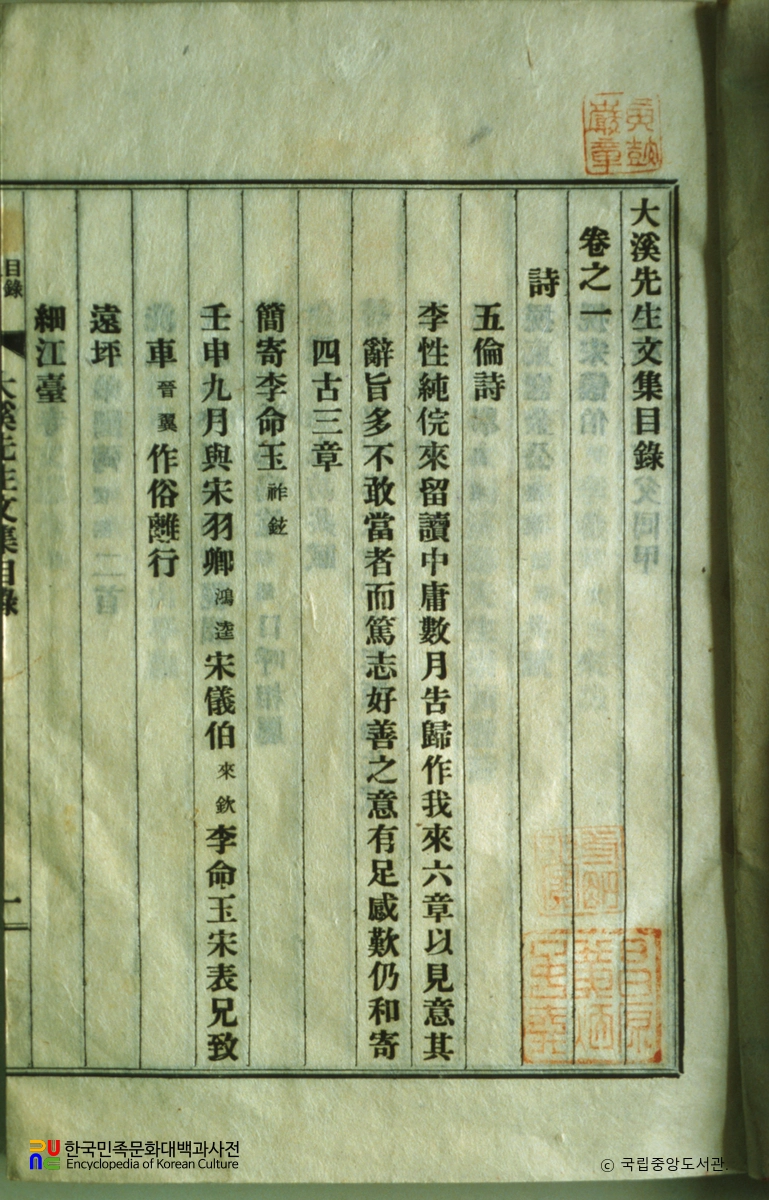 大溪先生文集目錄
卷之一
詩
五倫詩
李性純俒來留讀中庸數月告歸作我來六章以見意其
辭旨多不敢當者而篤志好善之意有足感歎仍和寄
四古三章
簡寄李命玉祚鉉
壬申九月與宋羽卿鴻逵宋儀伯來欽李命玉宋表兄致
車晉翼作俗離行
遠坪
細江臺
目錄
大溪先生文集目錄
一
한국민족문화대백과사전
Encyclopedia of Korean Culture
© 국립중앙도서관